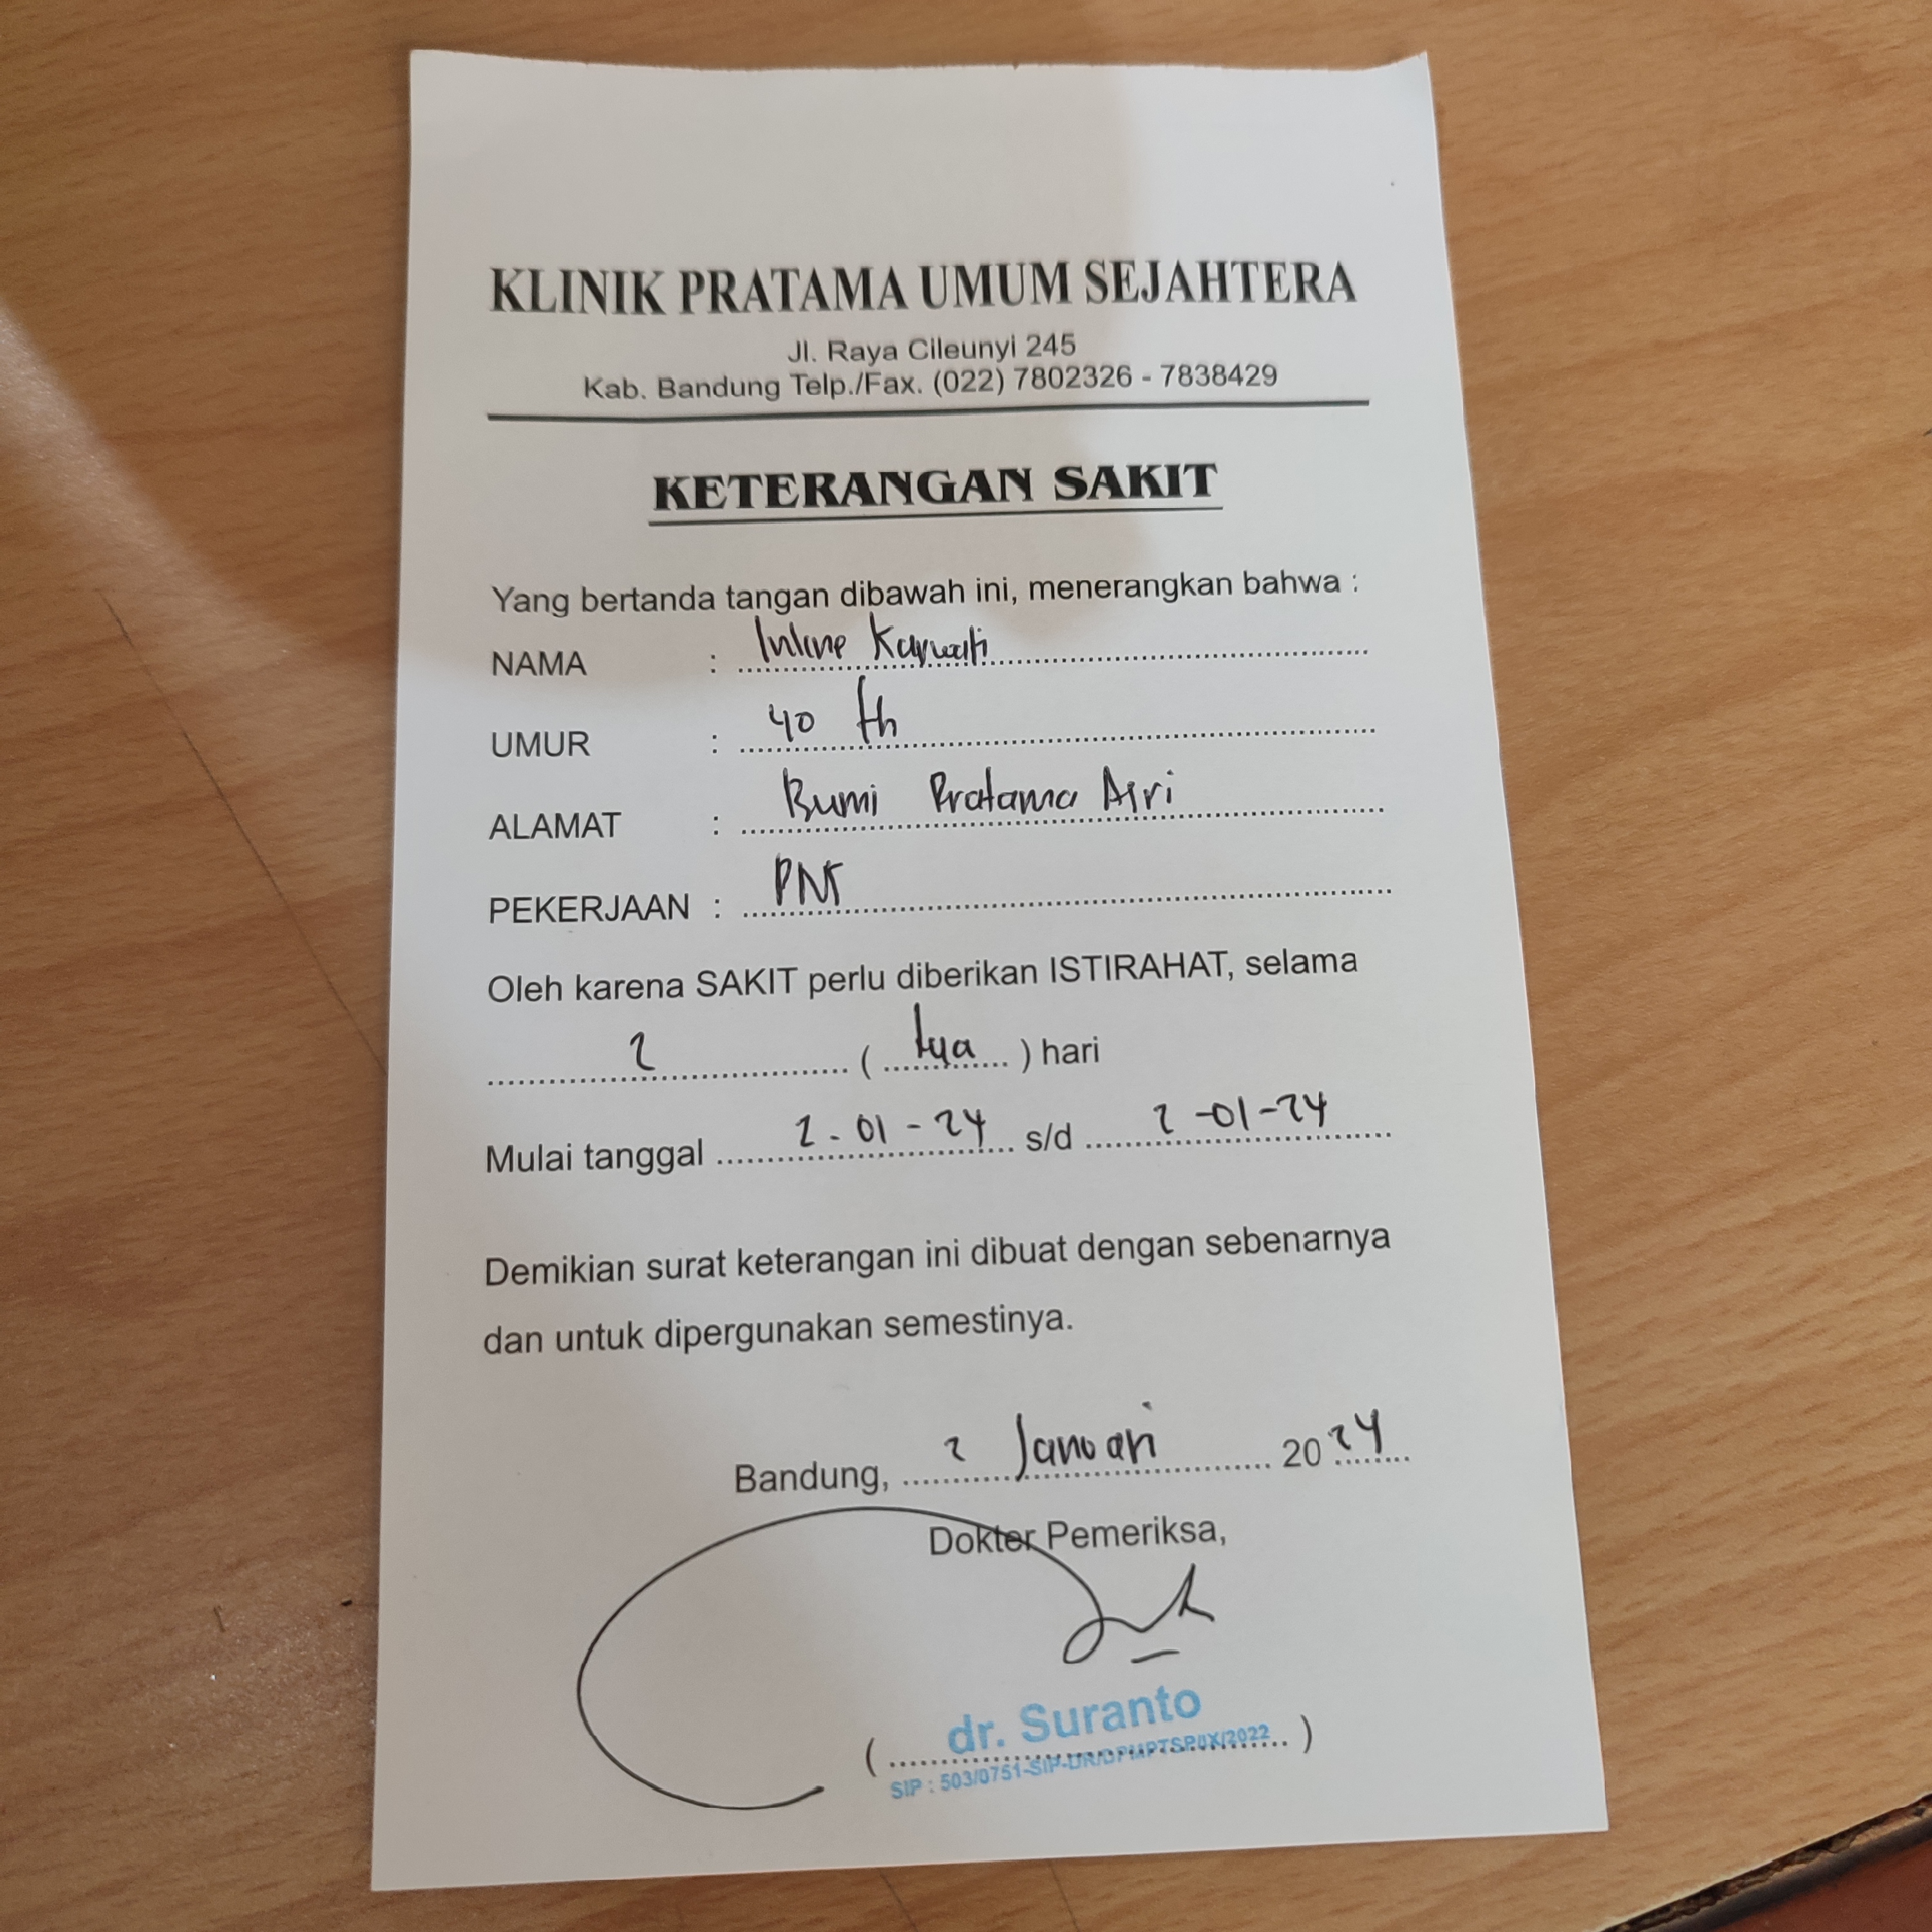 KLINIK PRATAMA UMUM SEJAHTERA
Jl. Raya Cileunyi 245
Kab. Bandung Telp./Fax. (022) 7802326 - 7838429
KETERANGAN SAKIT
Yang bertanda tangan dibawah ini, menerangkan bahwa :
NAMA :
UMUR : 40 th
ALAMAT : Bumi Pratama Asri
PEKERJAAN : PNS
Oleh karena SAKIT perlu diberikan ISTIRAHAT, selama
( ) hari
Mulai tanggal 2-01-24 s/d 2-01-24
Demikian surat keterangan ini dibuat dengan sebenarnya
dan untuk dipergunakan semestinya.
Bandung, 2 Januari 2024
Dokter Pemeriksa,
( dr. Suranto )
SIP : 503/0751-SIP-DR/DPMPTSP/IX/2022